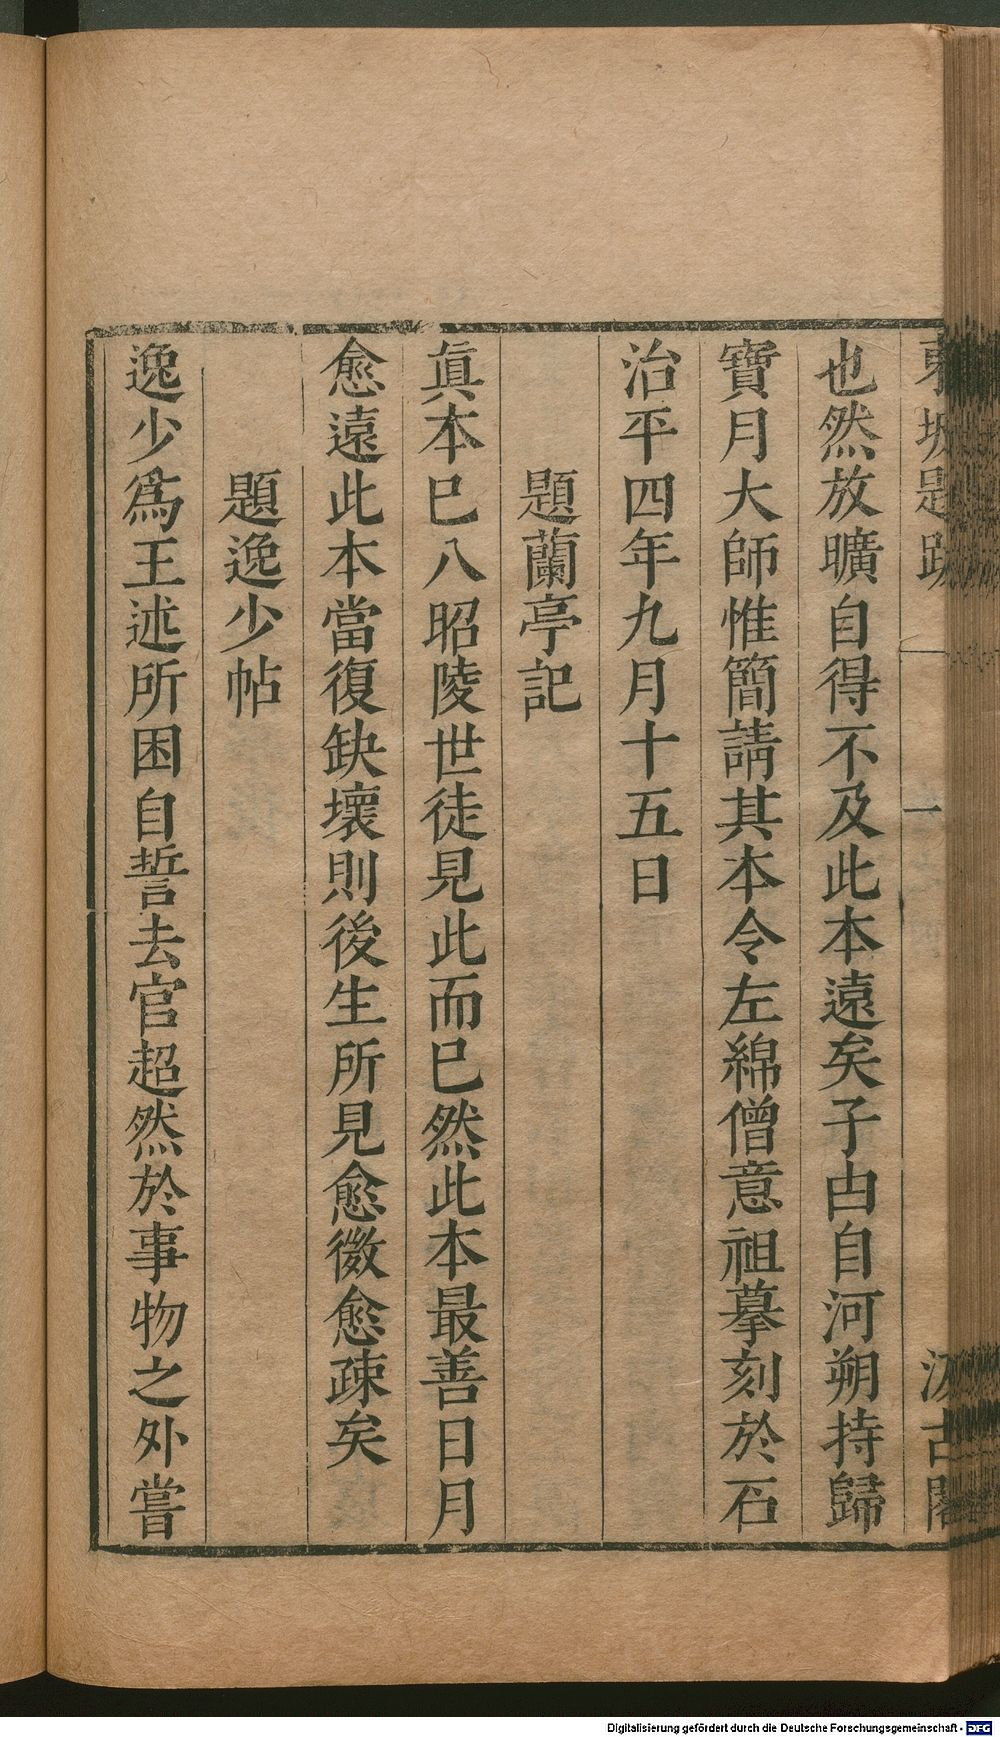 東坡題跋 一 汲古閣
也然放曠自得不及此本遠矣子由自河朔持歸
寶月大師惟簡請其本令左綿僧意祖摹刻於石
治平四年九月十五日
題蘭亭記
眞本已入昭陵世徒見此而已然此本最善日月
愈遠此本當復缺壞則後生所見愈微愈疎矣
題逸少帖
逸少爲王述所困自誓去官超然於事物之外嘗
Digitalisierung gefördert durch die Deutsche Forschungsgemeinschaft - DFG